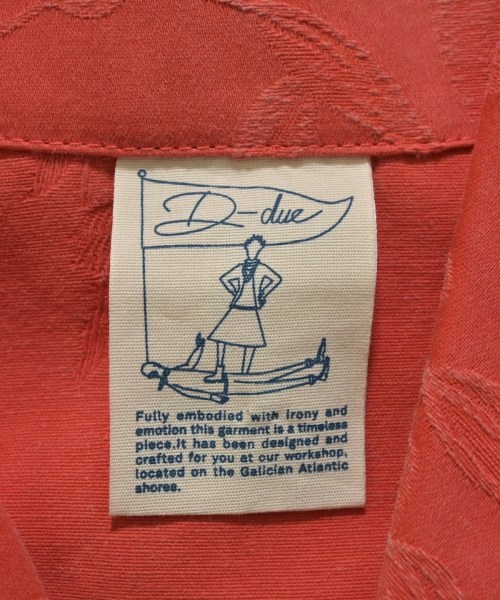 D-due
Fully embodied with irony and
emotion this garment is a timeless
piece.It has been designed and
crafted for you at our workshop,
located on the Galician Atlantic
shores.